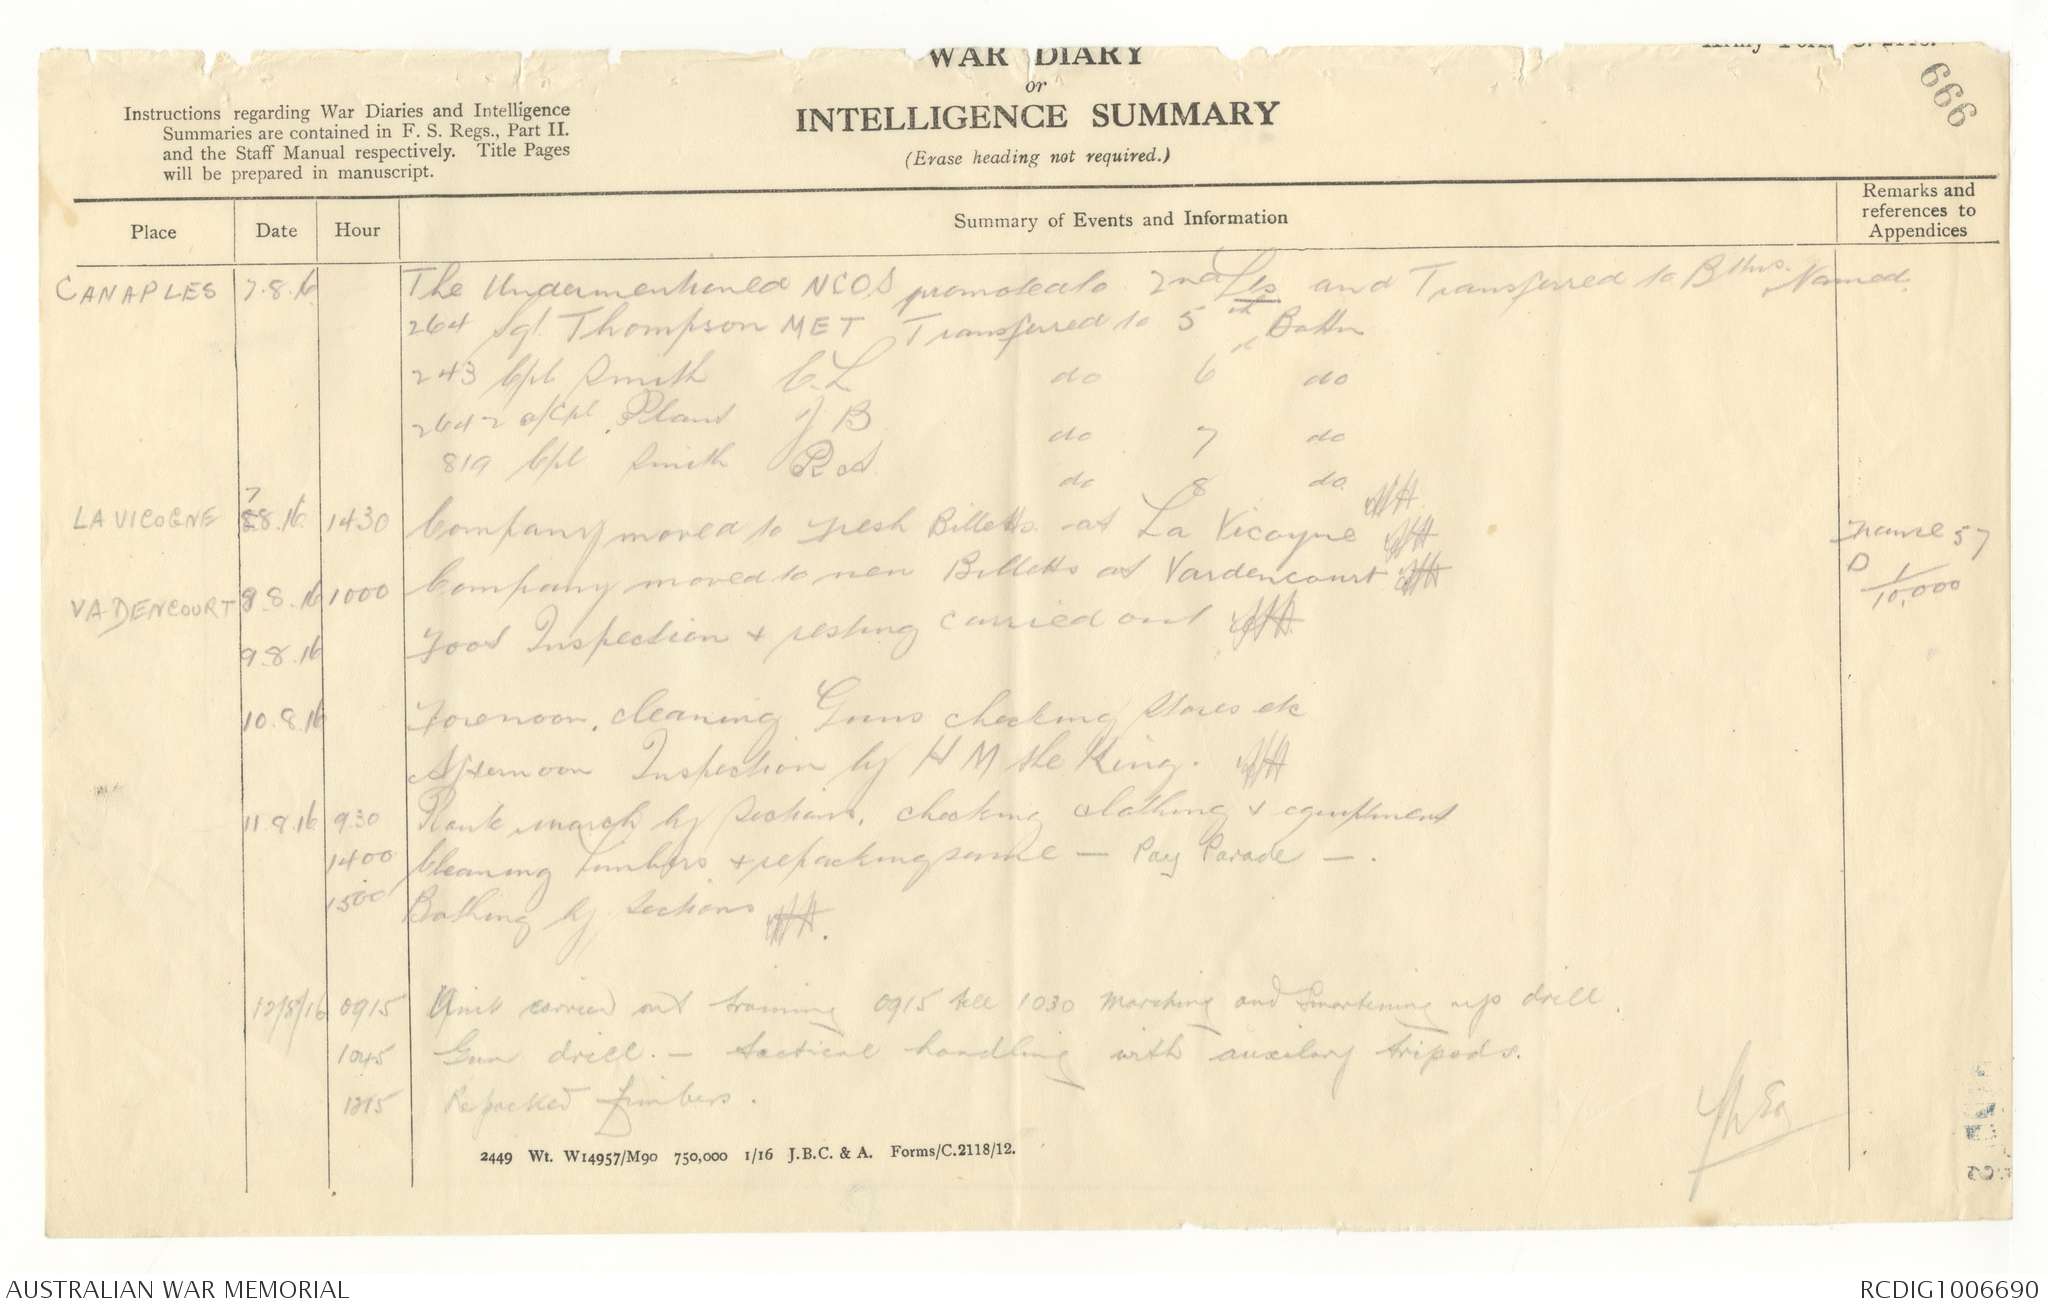 WAR DIARY
or
INTELLIGENCE SUMMARY
(Erase heading not required.)
666
Instructions regarding War Diaries and Intelligence
Summaries are contained in F. S. Regs., Part II.
and the Staff Manual respectively. Title Pages
will be prepared in manuscript.
Place Date Hour Summary of Events and Information Remarks and references to Appendices
CANAPLES 7.8.16 The Undermentioned NCOs promoted to 2nd Lts and Transferred to Bttns. Named.
264 Sgt Thompson MET Transferred to 5th Battn
243 Cpl Smith C.L do 6 do
2642 a/Cpl Plant J B do 7 do
819 Cpl Smith R do 8 do
LA VICOGNE 7 8.16 1430 Company moved to fresh Billetts at La Vicogne
France 57 D 1/10,000
VADENCOURT 8.8.16 1000 Company moved to new Billetts at Vardencourt
9.8.16 Foot Inspection & resting carried out
10.8.16 Forenoon, cleaning Guns checking Stores etc
Afternoon Inspection by H M the King.
11.8.16 9.30 Route march by Sections, checking clothing & equiptment
1400 Cleaning Limbers & repacking same — Pay Parade — .
1500 Bathing by Sections
12/8/16 0915 Unit carried out training 0915 till 1030 Marching and Smartening up drill.
1045 Gun drill. — tactical handling with auxilary tripods.
1215 Repacked limbers.
2449 Wt. W14957/M90 750,000 1/16 J.B.C. & A. Forms/C.2118/12.
AUSTRALIAN WAR MEMORIAL
RCDIG1006690